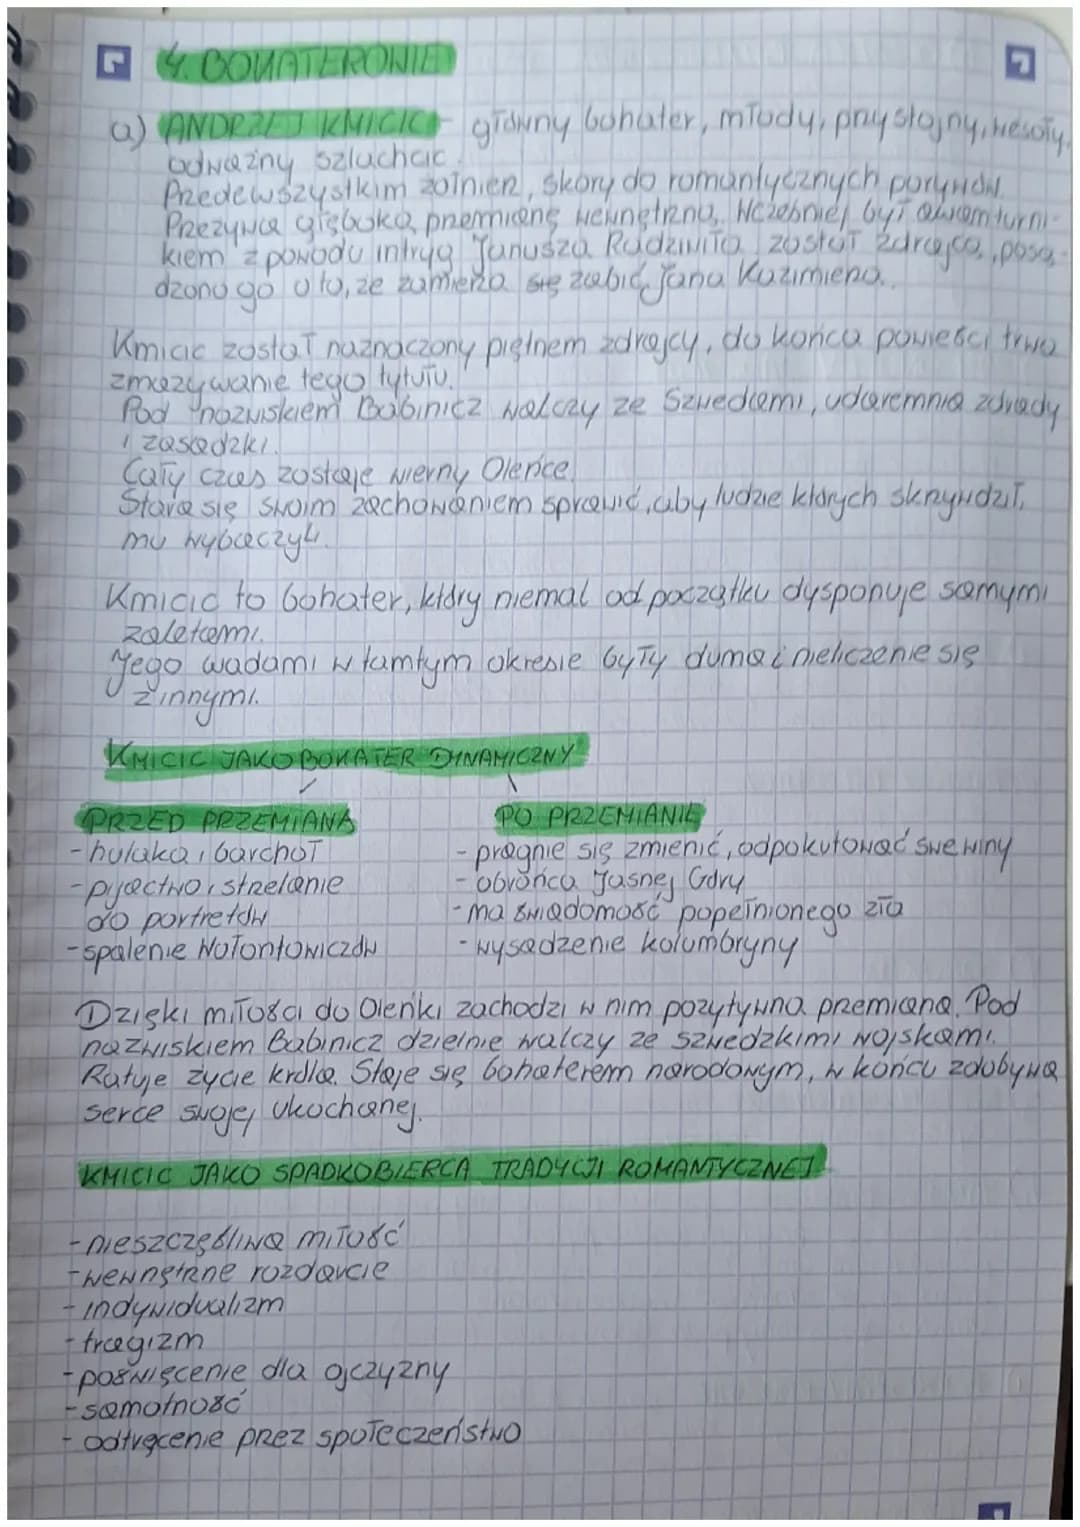 4. BOHATEROWIE
a) ANDRZEJ KMICIC - główny bohater, młody, przystojny, wesoły,
odważny szlachcic.
Przedewszystkim żołnierz, skory do romantycznych porywów.
Przeżywa głęboką przemianę wewnętrzną. Wcześniej był awanturni-
kiem z powodu intryg Janusza Radziwiłła został zdrajcą, posą-
dzono go o to, że zamierza się zabić Jana Kazimierza.
Kmicic został naznaczony piętnem zdrajcy, do końca powieści trwa
zmazywanie tego tytułu.
Pod nazwiskiem Babinicz walczy ze Szwedami, udaremnia zdrady
i zasadzki.
Cały czas zostaje wierny Oleńce.
Stara się swoim zachowaniem sprawić, aby ludzie których skrzywdził,
mu wybaczyli.
Kmicic to bohater, który niemal od początku dysponuje samymi
zaletami.
Jego wadami w tamtym okresie były duma i nieliczenie się
z innymi.
KMICIC JAKO BOHATER DYNAMICZNY
PRZED PRZEMIANĄ
- hulaka, barchoł
- pijactwo, strzelanie
do portretów
- spalenie Wołontowiczów
PO PRZEMIANIE
- pragnie się zmienić, odpokutować swe winy
- obrońca Jasnej Góry
- ma świadomość popełnionego zła
- wysadzenie kolumbryny
Dzięki miłości do Oleńki zachodzi w nim pozytywna przemiana. Pod
nazwiskiem Babinicz dzielnie walczy ze szwedzkimi wojskami.
Ratuje życie króla. Staje się bohaterem narodowym, w końcu zdobywa
serce swojej ukochanej.
KMICIC JAKO SPADKOBIERCA TRADYCJI ROMANTYCZNEJ
- nieszczęśliwa miłość
- wewnętrzne rozdarcie
- indywidualizm
- tragizm
- poświęcenie dla ojczyzny
- samotność
- odtrącenie przez społeczeństwo